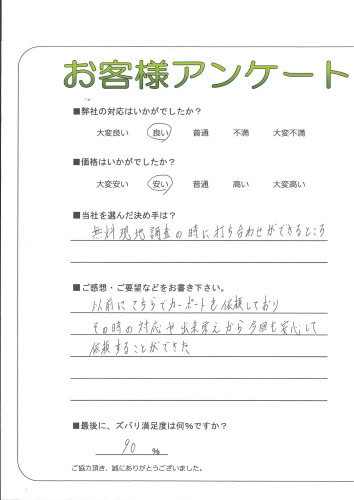 お客様アンケート
■弊社の対応はいかがでしたか?
大変良い 良い 普通 不満 大変不満
■価格はいかがでしたか?
大変安い 安い 普通 高い 大変高い
■当社を選んだ決め手は?
無料現地調査の時に打ち合わせができるところ
■ご感想・ご要望などをお書き下さい。
以前にこちらでカーポートを依頼しており
その時の対応や出来栄えから今回も安心して
依頼することができた
■最後に、ズバリ満足度は何%ですか?
90 %
ご協力頂き、誠にありがとうございました。